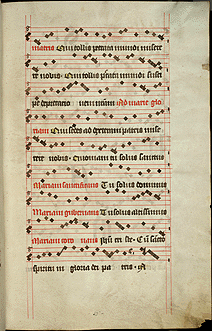 matris Qui tollis peccata mundi misere
re nobis Qui tollis peccata mundi susci
pe deprecatio nem nostram Ad marie glo
riam Qui sedes ad dexteram patris mise
rere nobis Quoniam tu solus sanctus
Mariam sanctificans Tu solus dominus
Mariam gubernans Tu solus altissimus
Mariam coro nans ihu xpe Cu sancto
spiritu in gloria dei pa tris A